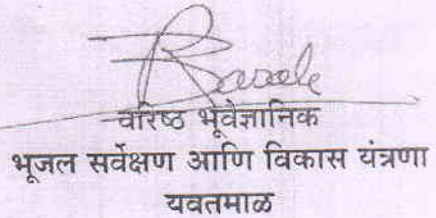 वरिष्ठ भूवैज्ञानिक
भूजल सर्वेक्षण आणि विकास यंत्रणा
यवतमाळ